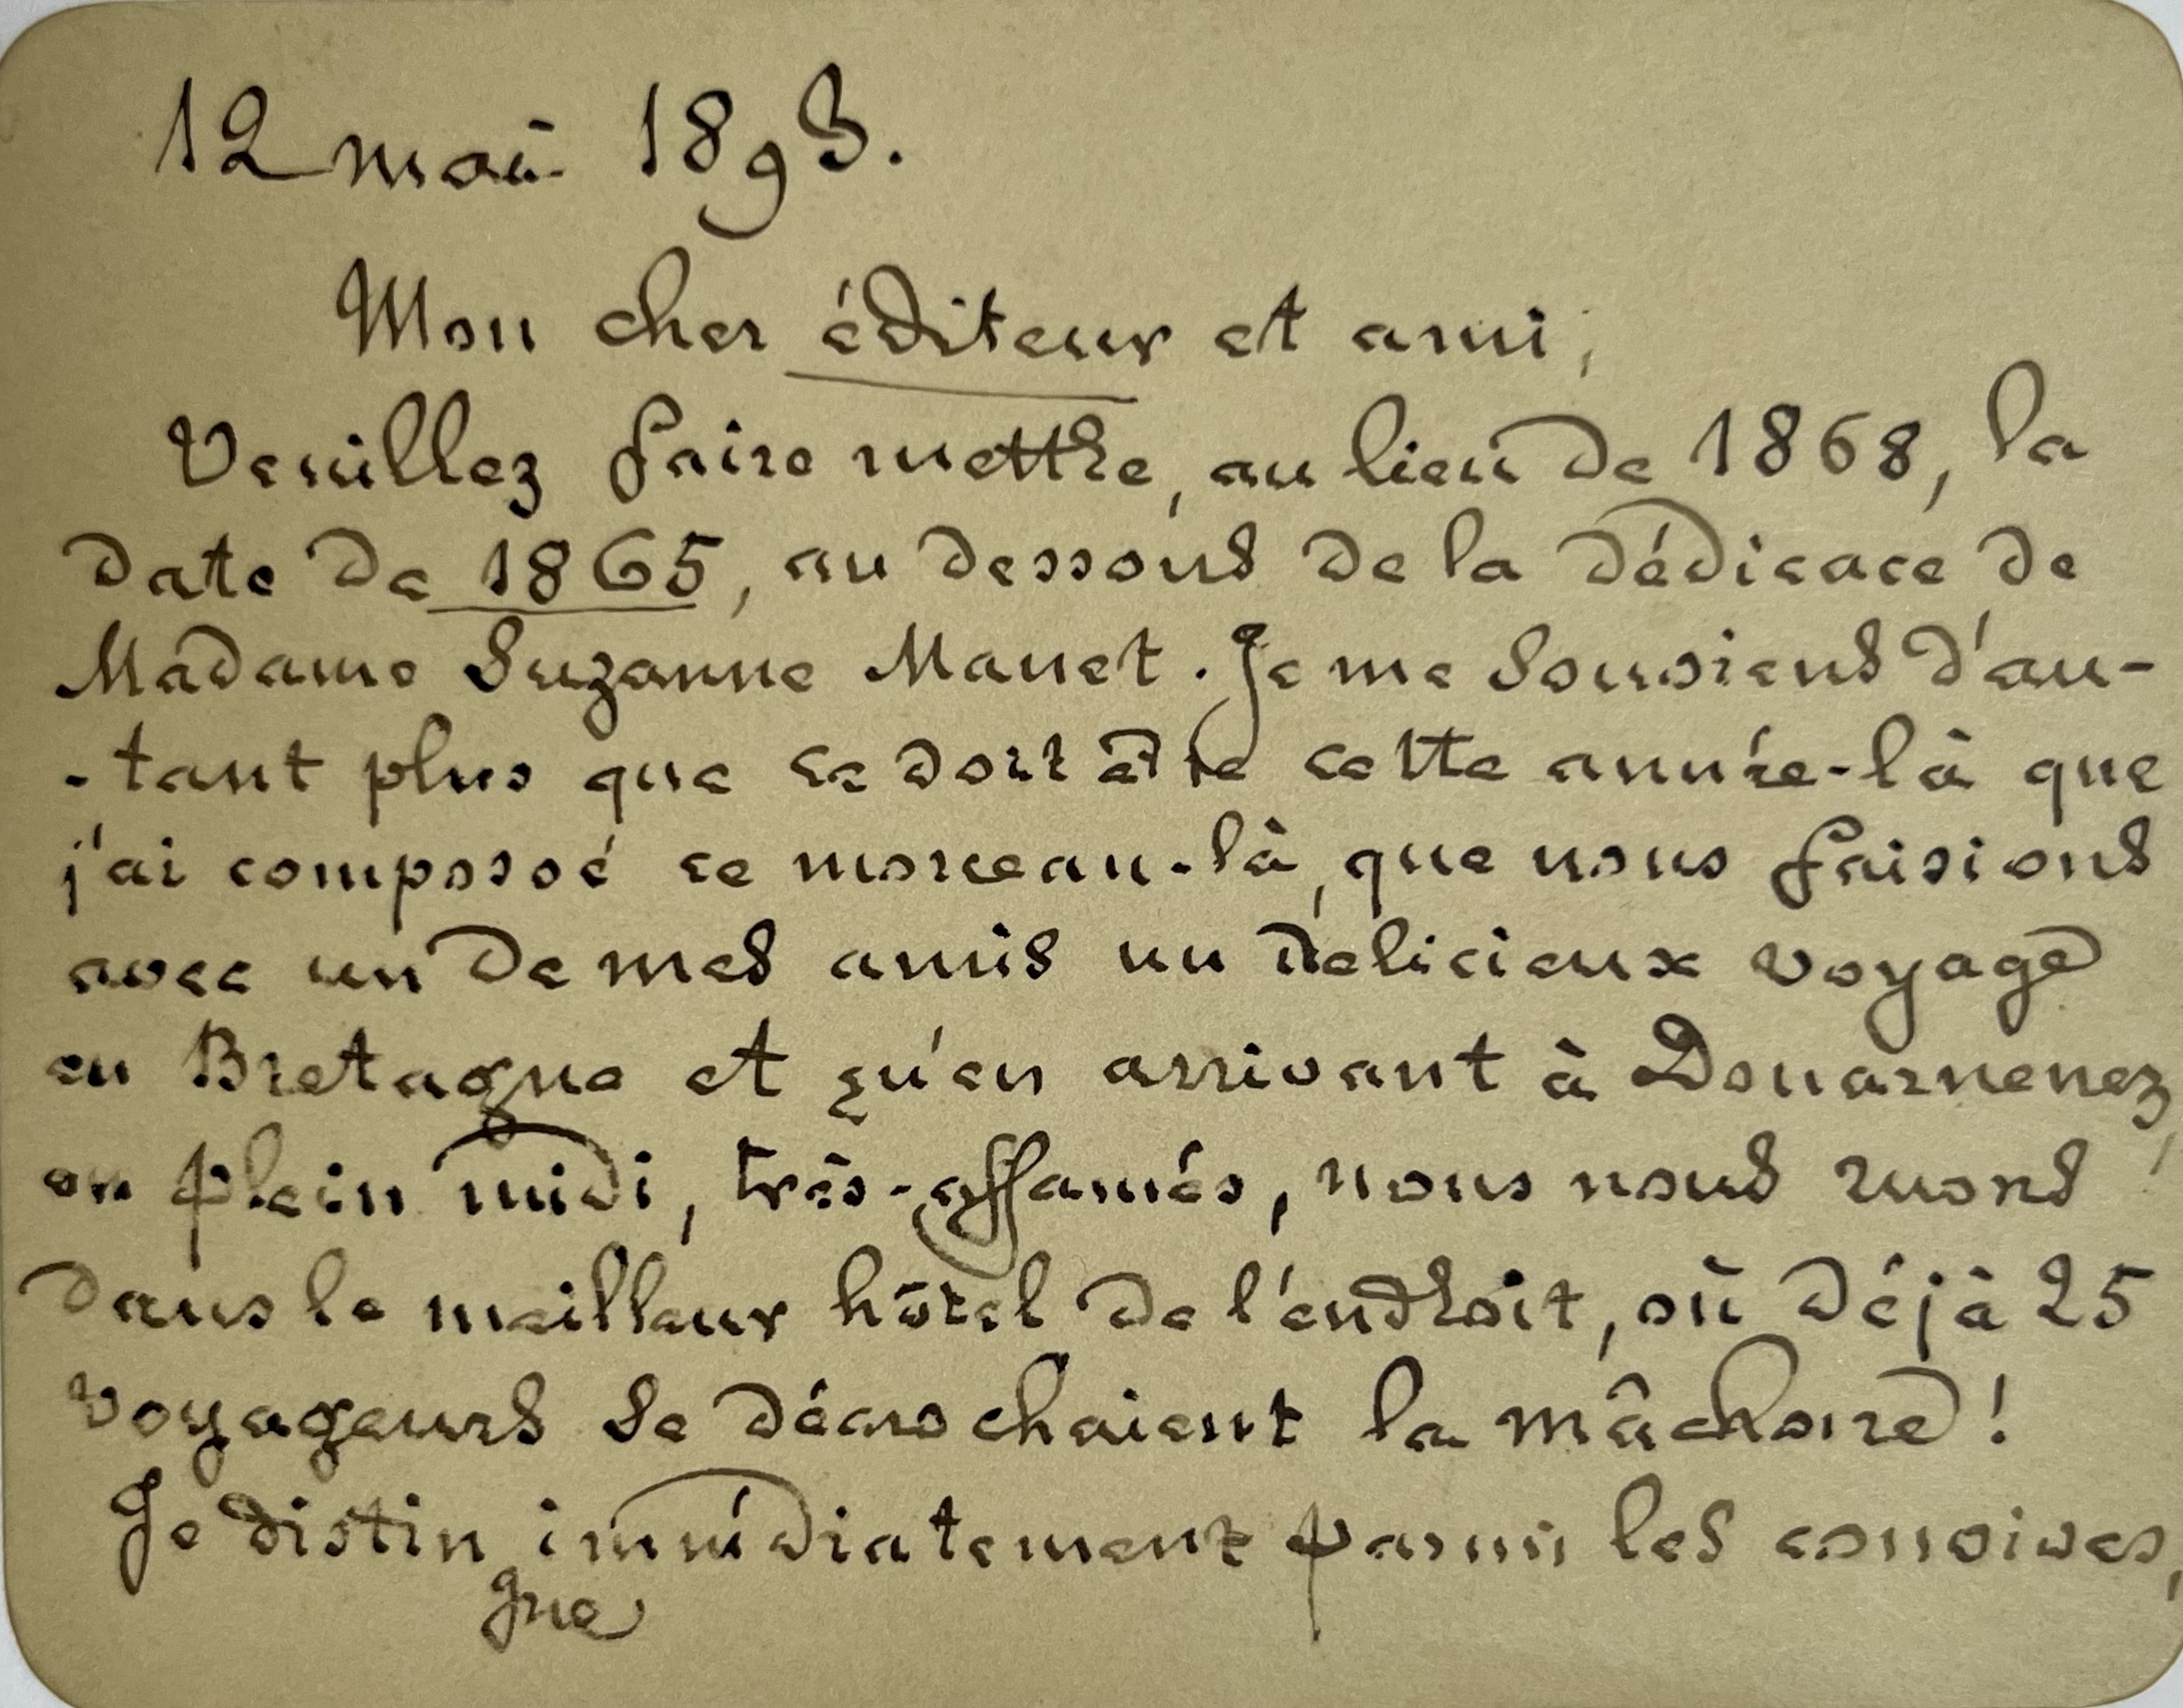 12 mai 1893.
Mon cher éditeur et ami,
Veuillez faire mettre, au lieu de 1868, la
date de 1865, au dessous de la dédicace de
Madame Suzanne Manet. Je me souviens d'au-
-tant plus que ce doit être cette année-là que
j'ai composé ce morceau-là, que nous faisions
avec un de mes amis un délicieux voyage
en Bretagne et qu'en arrivant à Douarnenez,
en plein midi, très-affamés, nous nous ruons
dans le meilleur hôtel de l'endroit, où déjà 25
voyageurs se décrochaient la mâchoire !
Je distin immédiatement parmi les convives,
gue